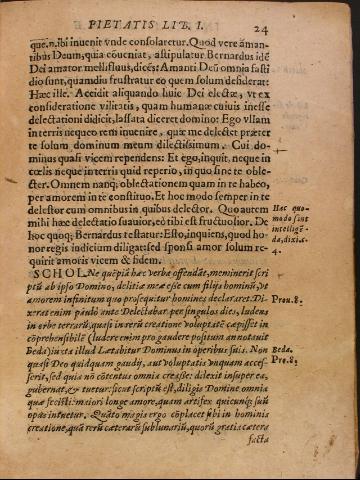 PIETATIS LIB. I. 24
que.n.ibi inuenit vnde consolaretur. Quod vere aman-
tibus Deum, quia cōueniat, astipulatur Bernardus idē
Dei amator mellifluus, dicēs: Amanti Deū omnia fasti
dio sunt, quamdiu frustratur eo quem solum desiderat:
Hæc ille. Accidit aliquando huic Dei electæ, vt ex
consideratione vilitatis, quam humanæ cuiuis inesse
delectationi didicit, lassata diceret domino: Ego vllam
in terris nequeo rem inuenire, quæ me delectet præter
te solum dominum meum dilectissimum. Cui do-
minus quasi vicem rependens: Et ego, inquit, neque in
cœlis neque in terris quid reperio, in quo sine te oble-
cter. Omnem nanq; oblectationem quam in te habeo,
per amorem in te constituo. Et hoc modo semper in te
delector cum omnibus in quibus delector. Quo autem
mihi hæc delectatio suauior, eò tibi est fructuosior. De
hoc quoq; Bernardus testatur: Esto, inquiens, quod ho-
nor regis iudicium diligat: sed sponsi amor solum re-
quirit amoris vicem & fidem.
Hæc quo-
modo sint
intelligē-
da, dixi.c.
4.
SCHOL. Ne quēpiā hæc verba offendāt, meminerit scri
ptū ab ipso Domino, delitiæ meæ esse cum filijs hominū, Vt
amorem infinitum quo prosequitur homines declararet. Di-
xerat enim paulò ante Delectabar per singulos dies, ludens
in orbe terrarū, quasi in rerū creatione voluptatē cœpisset in
cōprehensibilē (ludere enim pro gaudere positum annotauit
Beda) iuxta illud Lætabitur Dominus in operibus suis. Non
quasi Deo quidquam gaudij, aut voluptatis vnquam acces-
serit, sed quia nō cōtentus omnia creasse: dilexit insuper ea,
gubernat, & tuetur: sicut scriptū est, diligis Domine omnia
quæ fecisti: maiori longe amore, quam artifex quicunq; suū
opus intuetur. Quāto magis ergo cōplacet sibi in hominis
creatione, quā rerū cæterarū sublunariū, quorū gratia cætera
facta
Prou.8.
Beda.
Pro.8.